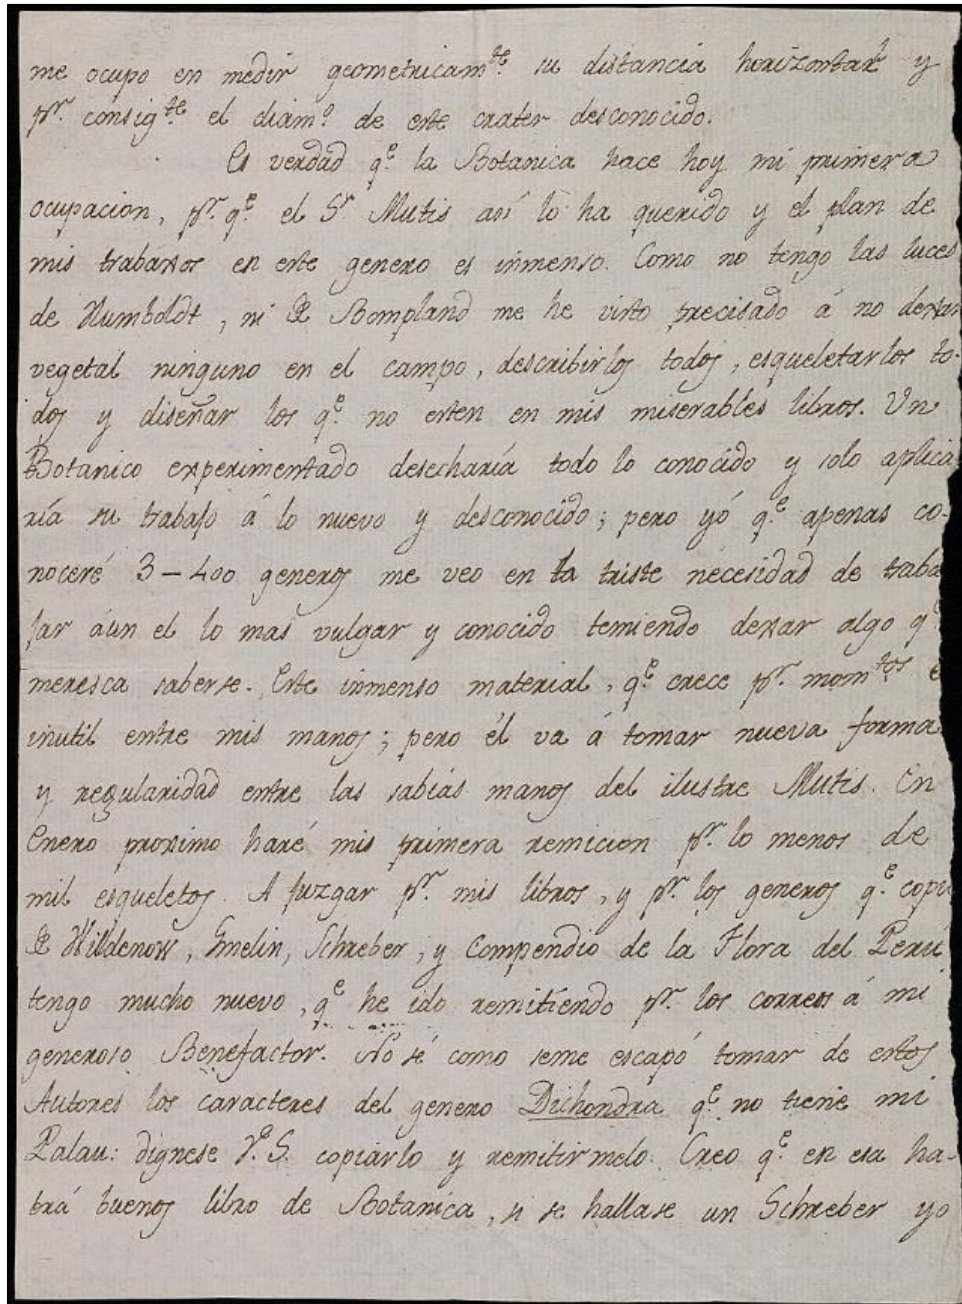 me ocupo en medir geometricam.te su distancia horizontal y
pr. consig.te el diam.o de este crater desconocido.
Es verdad q.e la Botanica hace hoy mi primera
ocupacion, pr. q.e el Sr Mutis así lo ha querido y el plan de
mis trabaxos en este genero es inmenso. Como no tengo las luces
de Humboldt, ni de Bompland me he visto precisado á no dexar
vegetal ninguno en el campo, describirlos todos, esqueletarlos to-
dos y diseñar los q.e no esten en mis miserables libros. Un
Botanico experimentado desecharía todo lo conocido y solo aplica
ría su trabajo á lo nuevo y desconocido; pero yó q.e apenas co-
noceré 3-400 generos me veo en la triste necesidad de traba
jar áun el lo mas vulgar y conocido temiendo dexar algo q.e
meresca saberse. Este inmenso material, q.e crece pr. mom.tos e
inutil entre mis manos; pero él va á tomar nueva forma
y regularidad entre las sabias manos del ilustre Mutis. En
Enero proximo haré mis primera remicion pr. lo menos de
mil esqueletos. A juzgar pr. mis libros, y pr. los generos q.e copi
de Willdenow, Gmelin, Schreber, y Compendio de la Flora del Perú
tengo mucho nuevo, q.e he ido remitiendo pr. los correos á mi
generoso Benefactor. No sé como seme escapó tomar de estos
Autores los caracteres del genero Dichondra q.e no tiene mi
Palau: dignese V.a S. copiarlo y remitirmelo. Creo q.e en esa ha-
brá buenos libro de Botanica, si se hallase un Schreber yo